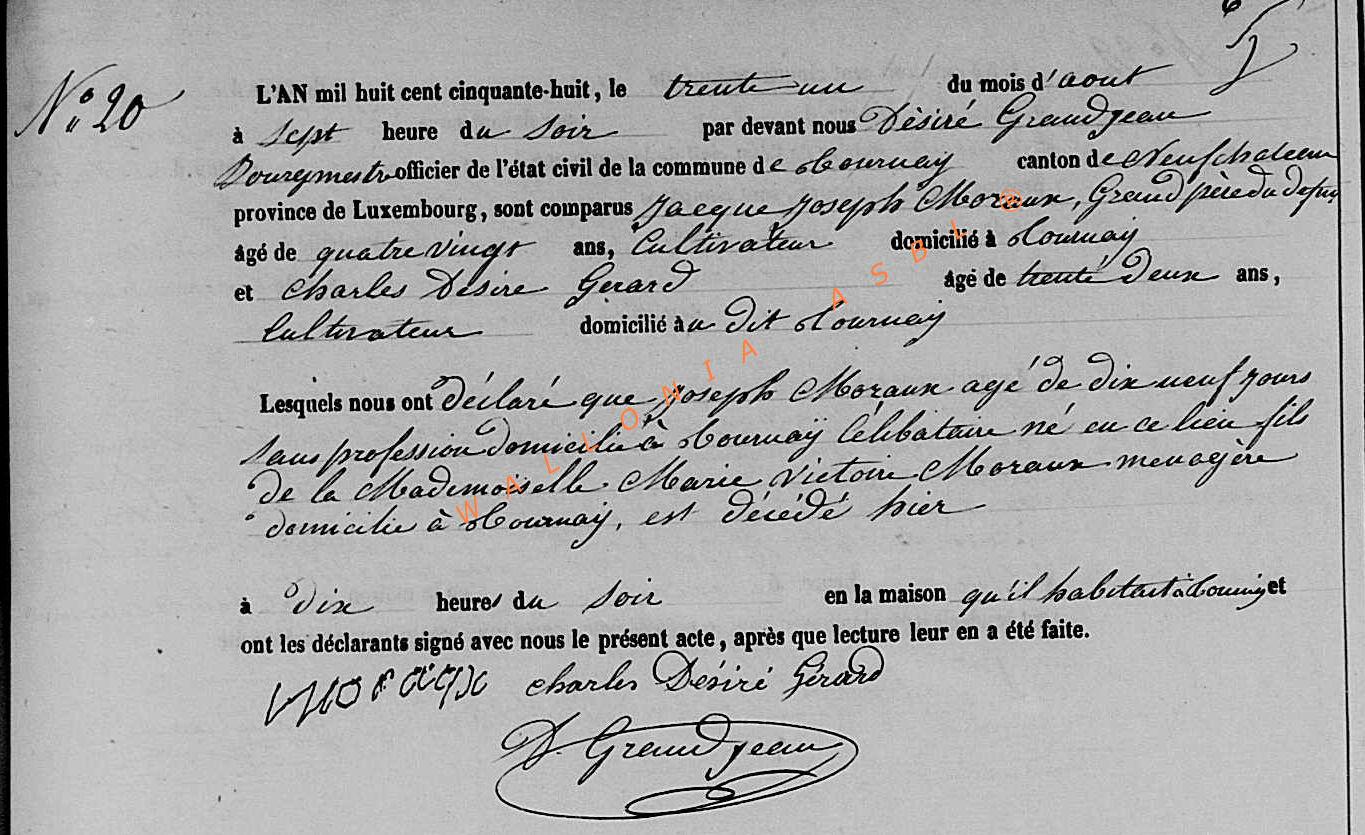 N° 20
L'AN mil huit cent cinquante-huit, le trente un du mois d'aout
à sept heure du soir par devant nous Désiré Grandjean
Bourgmestre officier de l'état civil de la commune de Tournay canton de Neufchateau
province de Luxembourg, sont comparus Jacque Joseph Moraux, Grand père du defunt
âgé de quatre vingt ans, Cultivateur domicilié à Tournay
et Charles Désiré Gerard âgé de trente deux ans,
Cultivateur domicilié au dit Tournay
Lesquels nous ont déclaré que Joseph Moraux agé de dix neuf jours
sans profession domicilié à Tournaÿ Célibataire né en ce lieu fils
de la Mademoiselle Marie Victoire Moraux menagère
domicilie à Tournay, est décédé hier
à dix heures du soir en la maison qu'il habitait à Tournay et
ont les déclarants signé avec nous le présent acte, après que lecture leur en a été faite.
moraux Charles Désiré Gérard
D. Grandjean
WALLONIA ASBL ®